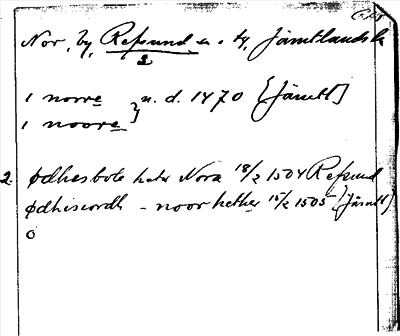 Nor, by, Refsund s:n, Jämtlands l:n
2
1 norre } u. d. 1470 [Jämtl]
1 noore
2. ødhesbole heter Nora 18/2 1504 Refsund
ødhisiordh – noor hether 15/2 1505 [Jämtl]
o